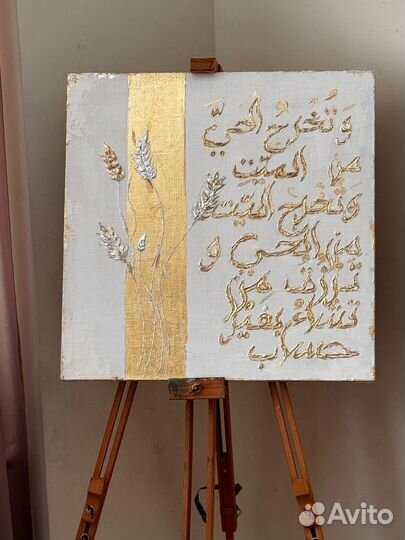 وَتُخْرِجُ الْحَيَّ
مِنَ الْمَيِّتِ
وَتُخْرِجُ الْمَيِّتَ
مِنَ الْحَيِّ وَ
تَرْزُقُ مَن
تَشَاءُ بِغَيْرِ
حساب
Avito